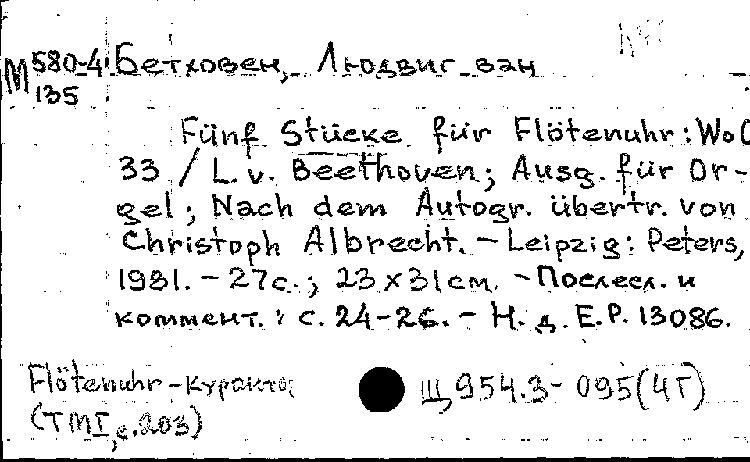 М 580-4 Бетховен, Людвиг ван
135
Fünf Stücke für Flötenuhr: WoO
33 / L. v. Beethoven; Ausg. für Or-
gel; Nach dem Autogr. übertr. von
Christoph Albrecht. - Leipzig: Peters,
1981. - 27 с.; 23 x 31 см. - Послесл. и
коммент.: с. 24-26. - Н. д. E.P. 13086.
Flötenuhr - куранты
(ТМI, с. 203)
Щ 954.3-095(4Г)